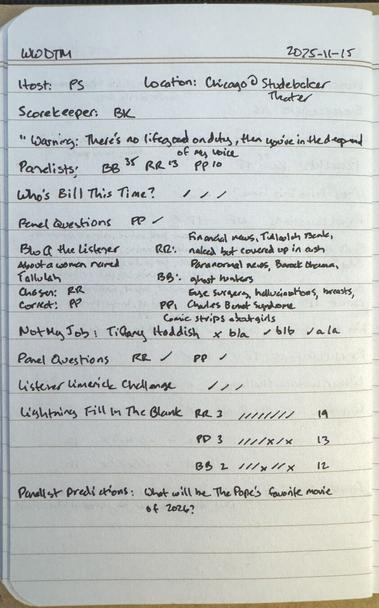 WWDTM 2025-11-15
Host: PS Location: Chicago @ Studebaker
Theater
Scorekeeper: BK
"Warning: There's no lifeguard on duty, then you're in the deep end
of my voice
Panelists: BB 35 RR 13 PP 10
Who's Bill This Time? ✓ ✓ ✓
Panel Questions PP ✓
Bluff the Listener RR: Financial news, Tallulah Bank,
naked but covered up in cash
About a woman named
Tallulah BB: Paranormal news, Barack Obama,
ghost hunters
Chosen: RR Eye surgery, hallucinations, breasts,
Correct: PP PP: Charles Bonnet Syndrome
Comic strips about girls
Not My Job: Tiffany Haddish x b/a ✓ b/b ✓ a/a
Panel Questions RR ✓ PP ✓
Listener Limerick Challenge ✓ ✓ ✓
Lightning Fill In The Blank RR 3 //////// 19
PP 3 ////x/x 13
BB 2 ///x//x 12
Panelist Predictions: What will be The Pope's favorite movie
of 2026?